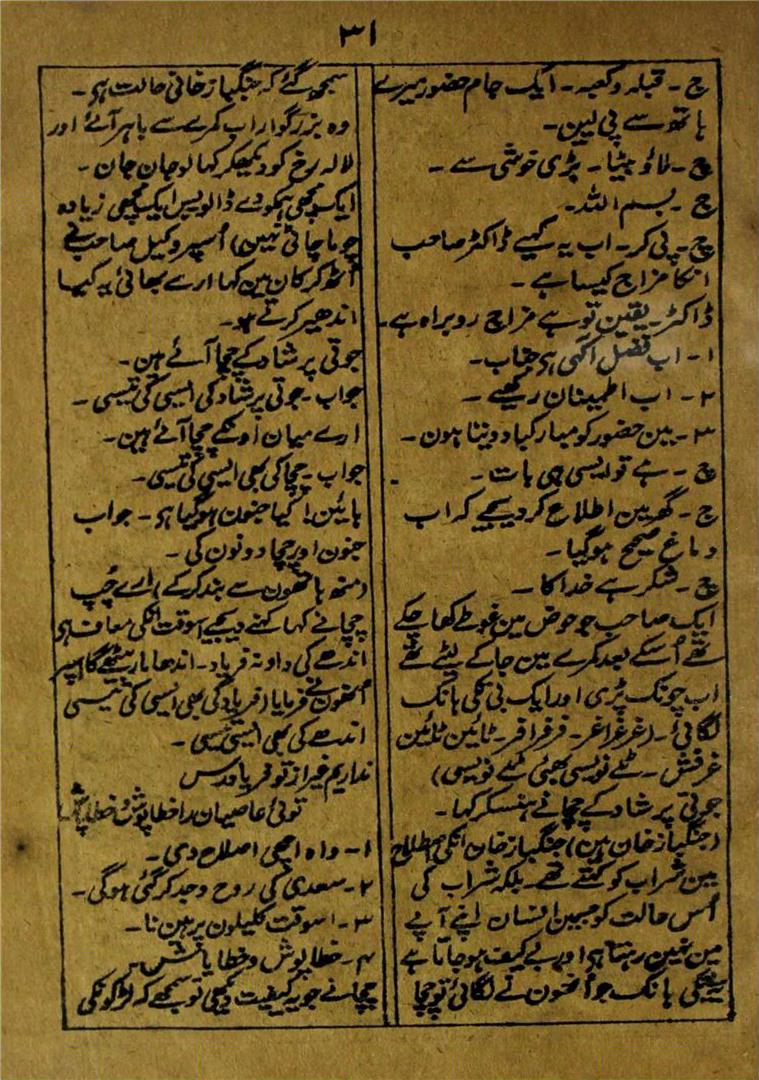 ۳۱
ج - قبلہ وکعبہ - ایک جام حضور میرے
ہاتھ سے پی لین -
چ - لاؤ بیٹا - بڑی خوشی سے -
ج - بسم اللہ -
چ - پی کر - اب یہ کہیے ڈاکٹر صاحب
انکا مزاج کیسا ہے -
ڈاکٹر - یقین تو ہے مزاج روبراہ ہے -
۱ - اب فضل الٰہی ہی جناب -
۲ - اب اطمینان رکھیے -
۳ - مین حضور کو مبارکباد دیتا ہون -
چ - ہے تو ایسی ہی بات -
ج - گھر مین اطلاع کر دیجیے کہ اب
دماغ صحیح ہوگیا -
چ - شکر ہے خدا کا -
ایک صاحب جو حوض مین غوطے کھا چکے
تھے اُسکے بعد کمرے مین جا کے لیٹے تھے
اب چونک پڑی اور ایک بی تکی ہانک
لگائی - (غرغراغر - فرفرافر - ٹائین ٹائین
غرفش - ٹے نویسی بھئی ٹے نویسی)
جوتی پرشاد کے چچا نے ہنسکر کہا -
(جنگباز خان ہین) جنگباز خان انکی اصطلاح
مین شراب کو کہتے تھے - بلکہ شراب کی
اُس حالت کو جسمین انسان اپنے آپے
مین نہین رہتا ہی اور بے کیف ہو جاتا ہے
یہ تکی ہانک جو اُنھون نے لگائی تو چچا
سمجھ گئے کہ جنگباز خانی حالت ہی -
وہ بزرگوار اب کمرے سے باہر آئے اور
لالہ رخ کو دیکھکر کہا لو جان جان -
ایک مچھی ہمکو دے ڈالو بس ایک مچھی زیادہ
چوما چاٹی نہین) اُسپر وکیل صاحب نے
اُٹھکر کان مین کہا ارے بھائی یہ کیا
اندھیر کرتے ہو -
جوتی پرشاد کے چچا آئے ہین -
جواب - جوتی پرشاد کی ایسی کی تیسی -
ارے میان اونکے چچا آئے ہین -
جواب - چچا کی بھی ایسی کی تیسی -
ہائین! کیا جنون ہوگیا ہی - جواب
جنون اور چچا دونون کی -
(منھ ہاتھون سے بند کرکے) ارے چُپ
چچا نے کہا کہنے دیجیے اسوقت انکی معاف ہی
اندھے کی داد نہ فریاد - اندھا مار بیٹھے گا اسپر
اُنھون نے فرمایا (فریاد کی بھی ایسی کی تیسی
اندھے کی بھی ایسی تیسی -
نداریم غیر از تو فریاد رس
توئی عاصیان را خطا پوش و خطا پاش
۱ - واہ اچھی اصلاح دی -
۲ - سعدی کی روح وجد کر گئی ہوگی -
۳ - اسوقت کلیلون پر ہین نا -
۴ - خطا پوش و خطا پاش -
چچا نے جو یہ کیفیت دیکھی تو سمجھے کہ لڑکونکی